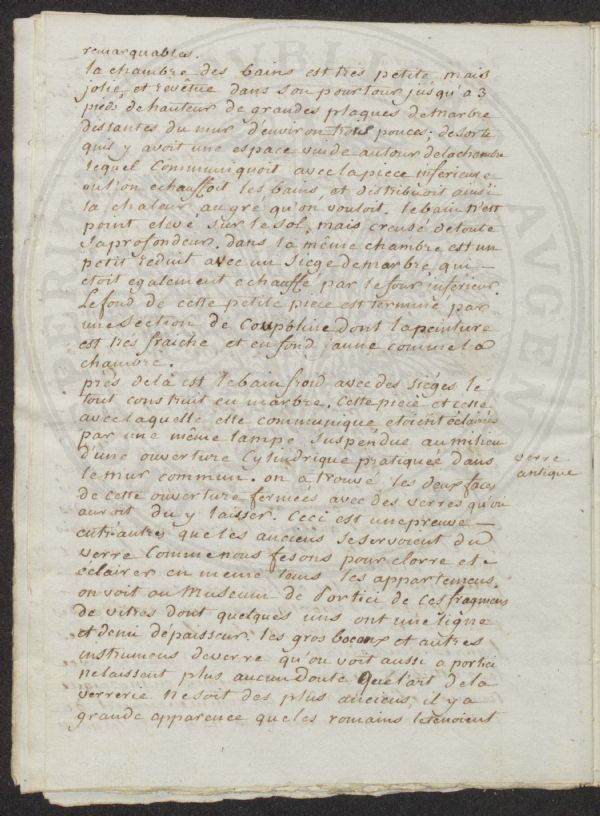 remarquables.
la chambre des bains est tres petite mais
jolie, et revêtue dans son pourtour jusqu'a 3
pieds de hauteur de grandes plaques de marbre
distantes du mur d'environ trois pouces; de sorte
quis y avoit une espace vuide autour de la chambre
lequel Communiquoit avec la piece inferieure
ou l'on echauffoit les bains, et distribuoit ainsi
la chaleur au gré qu'on vouloit. le bain n'est
point elevé sur le sol, mais creusé de toute
sa profondeur. dans la même chambre est un
petit reduit avec un siege de marbre, qui —
etoit egalement echauffé par le four inferieur.
Le fond de cette petite piece est terminé par
une section de Coupole dont la peinture
est tres fraiche et en fond jaune comme la
chambre.
prés de la est le bain froid avec des siéges le
tout construit en marbre. Cette piece et celle
avec laquelle elle communique etoient éclairés
par une même lampe suspendue au milieu
d'une ouverture Cylindrique pratiquée dans
le mur commun. on a trouvé les deux faces
de cette ouverture fermées avec des verres qu'on
auroit du y laisser. Ceci est une preuve —
entr'autres que les anciens se servoient du
verre Comme nous fesons pour clorre et
éclairer en meme tems les appartemens.
on voit au Museum de Portici de ces fragmens
de vitres dont quelques uns ont une ligne
et demi d'épaisseur. les gros bocaux et autres
instrumens de verre qu'on voit aussi a portici
ne laissent plus aucun doute que l'art de la
verrerie ne soit des plus anciens; il y a
grande apparence que les romains le tenoient
verre
antique